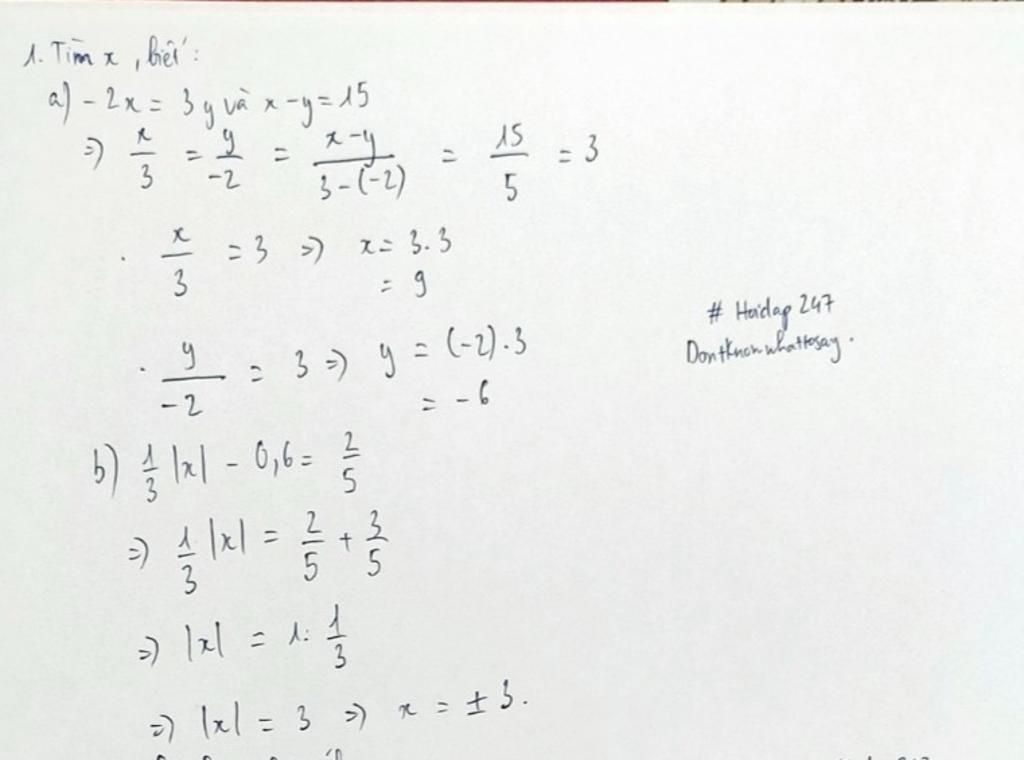 1. Tìm x, biết:
a) -2x = 3y và x-y=15
=> x/3 = y/-2 = x-y/3-(-2) = 15/5 = 3
. x/3 = 3 => x = 3.3
= 9
# Hoidap 247
Dontknowwhattosay.
. y/-2 = 3 => y = (-2).3
= -6
b) 1/3 |x| - 0,6 = 2/5
=> 1/3 |x| = 2/5 + 3/5
=> |x| = 1: 1/3
=> |x| = 3 => x = ± 3.